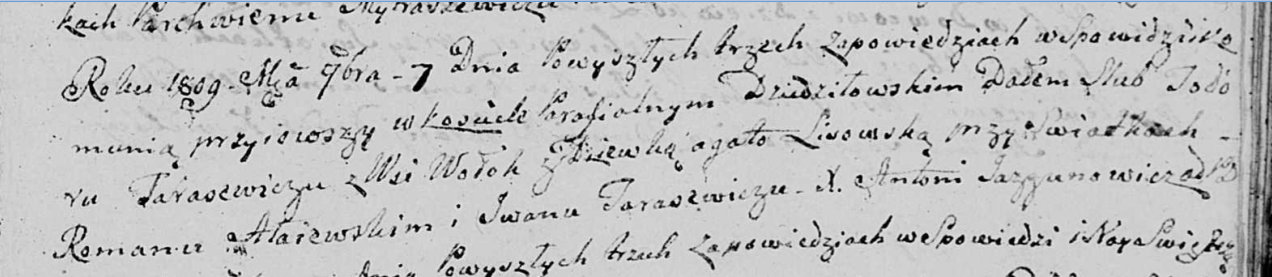 kach Parchwiemu Mytraszewiczu
Roku 1809 Mca 9bra - 7 Dnia Powyszłych trzech zapowiedziach w Spowidzi i Ko
munią przyiowszy w kosciele Parafialnym Dziedziłowskim Dałem Slub Todo
ru Tarasewiczu z Wsi Wołok z Dziewką agatą Lisowską przy Swiatkach -
Romanu Alaiewskim i Iwanu Tarasewiczu - X. Antoni Jazgunowicz ad
Dnia Powyszłych trzech Zapowiedziach w Spowiedzi i Nays